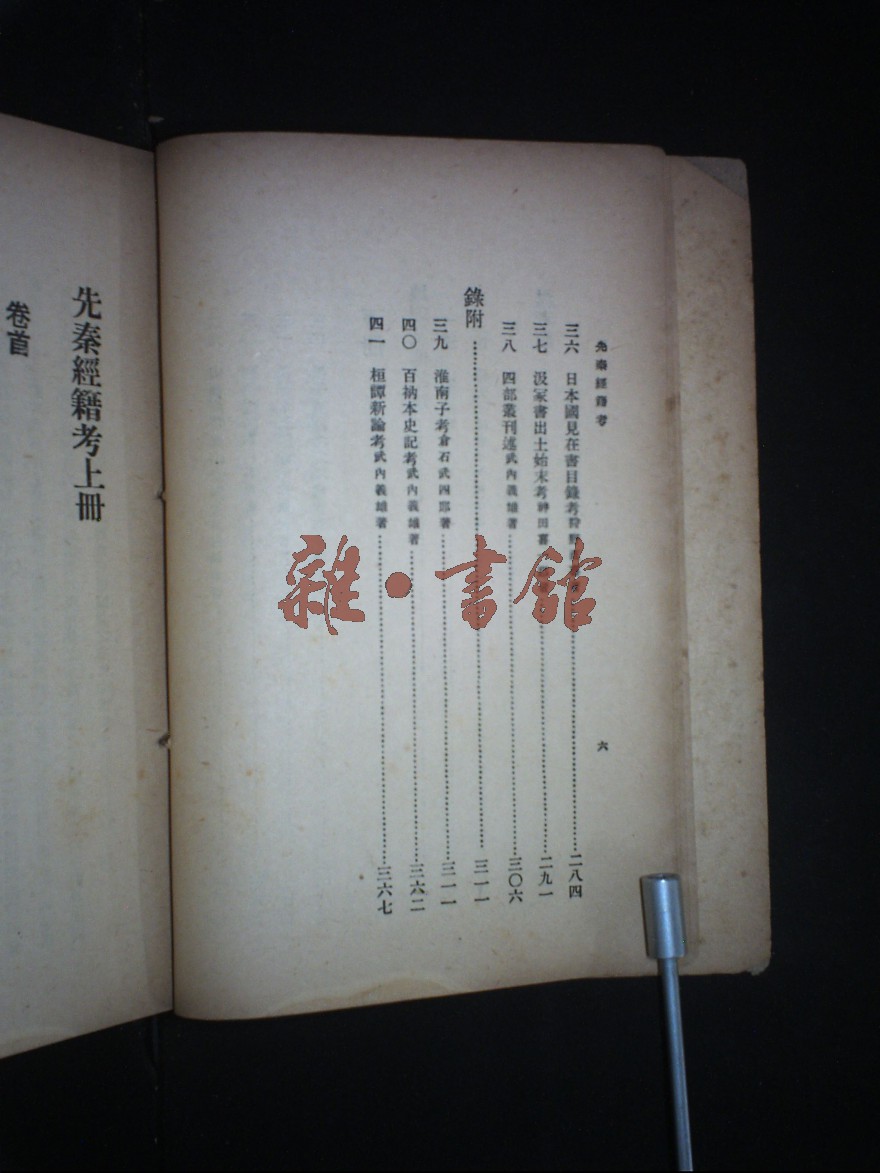 先秦經籍考
三六 日本國見在書目錄考狩 二八四
三七 汲冢書出土始末考神田喜 二九一
三八 四部叢刊述武內義雄著 三〇六
錄附 三一一
三九 淮南子考倉石武四郎著 三一一
四〇 百衲本史記考武內義雄著 三六二
四一 桓譚新論考武內義雄著 三六七
六
先秦經籍考上冊
卷首
雜·書館